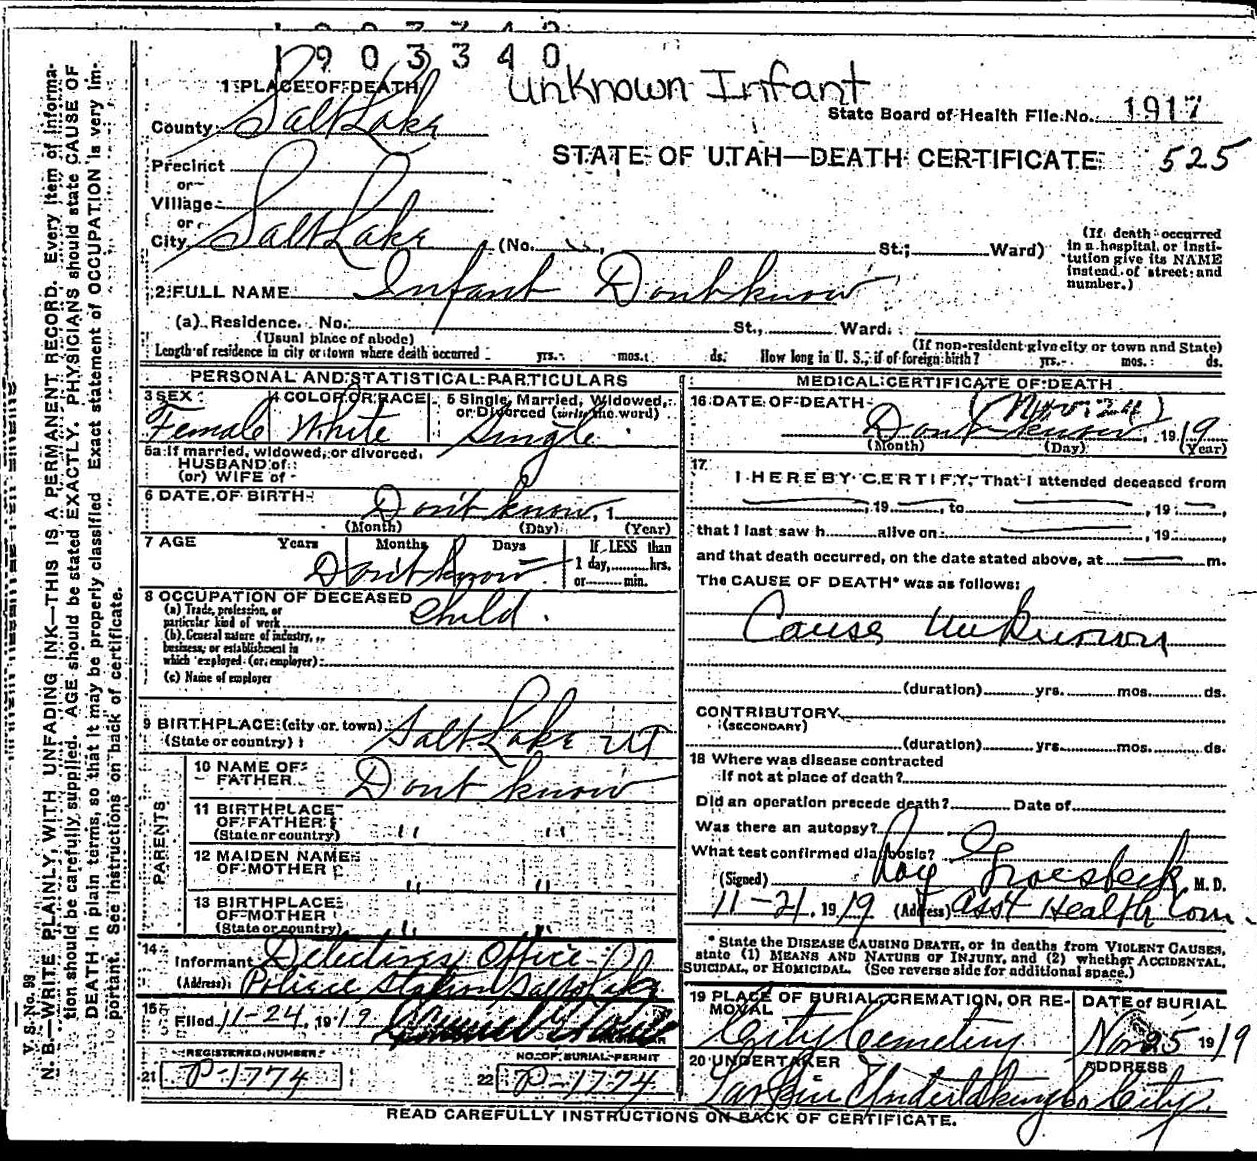 1903340
Unknown Infant
1 PLACE OF DEATH
State Board of Health File No. 1917
County Salt Lake
STATE OF UTAH—DEATH CERTIFICATE 525
Precinct
or
Village
or
City Salt Lake (No. St.; Ward)
(If death occurred in a hospital or institution give its NAME instead of street and number.)
2 FULL NAME Infant Dont know
(a) Residence. No. St., Ward.
(Usual place of abode) (If non-resident give city or town and State)
Length of residence in city or town where death occurred yrs. mos. ds. How long in U. S., if of foreign birth? yrs. mos. ds.
PERSONAL AND STATISTICAL PARTICULARS
3 SEX 4 COLOR OR RACE 5 Single, Married, Widowed, or Divorced (write the word)
Female White Single
5a If married, widowed, or divorced,
HUSBAND of
(or) WIFE of
6 DATE OF BIRTH Don't know, 1
(Month) (Day) (Year)
7 AGE Years Months Days If LESS than 1 day, hrs. or min.
Don't know
8 OCCUPATION OF DECEASED Child.
(a) Trade, profession, or particular kind of work
(b) General nature of industry, business, or establishment in which employed (or employer)
(c) Name of employer
9 BIRTHPLACE (city or town) Salt Lake UT
(State or country)
PARENTS
10 NAME OF FATHER Dont know
11 BIRTHPLACE OF FATHER " "
(State or country)
12 MAIDEN NAME OF MOTHER " "
13 BIRTHPLACE OF MOTHER " "
(State or country)
14 Informant Detectives Office
(Address) Police Station Salt Lake
15 Filed 11-24, 1919
REGISTRAR
21 REGISTERED NUMBER P-1774
22 NO. OF BURIAL PERMIT P-1774
MEDICAL CERTIFICATE OF DEATH
16 DATE OF DEATH (Nov. 24)
Dont know, 1919
(Month) (Day) (Year)
17 I HEREBY CERTIFY, That I attended deceased from
, 19 , to , 19 ,
that I last saw h alive on , 19 ,
and that death occurred, on the date stated above, at m.
The CAUSE OF DEATH* was as follows:
Cause Unknown
(duration) yrs. mos. ds.
CONTRIBUTORY
(SECONDARY)
(duration) yrs. mos. ds.
18 Where was disease contracted
if not at place of death?
Did an operation precede death? Date of
Was there an autopsy?
What test confirmed diagnosis?
(Signed) Roy Groesbeck M. D.
11-21, 1919 (Address) asst Health Com.
* State the DISEASE CAUSING DEATH, or in deaths from VIOLENT CAUSES,
state (1) MEANS AND NATURE OF INJURY, and (2) whether ACCIDENTAL,
SUICIDAL, or HOMICIDAL. (See reverse side for additional space.)
19 PLACE OF BURIAL, CREMATION, OR REMOVAL DATE of BURIAL
City Cemetery Nov 25 1919
20 UNDERTAKER ADDRESS
Larkin Undertaking Co City.
READ CAREFULLY INSTRUCTIONS ON BACK OF CERTIFICATE.
V. S. No. 98
N. B.—WRITE PLAINLY, WITH UNFADING INK—THIS IS A PERMANENT RECORD. Every item of informa-
tion should be carefully supplied. AGE should be stated EXACTLY. PHYSICIANS should state CAUSE OF
DEATH in plain terms, so that it may be properly classified. Exact statement of OCCUPATION is very im-
portant. See instructions on back of certificate.